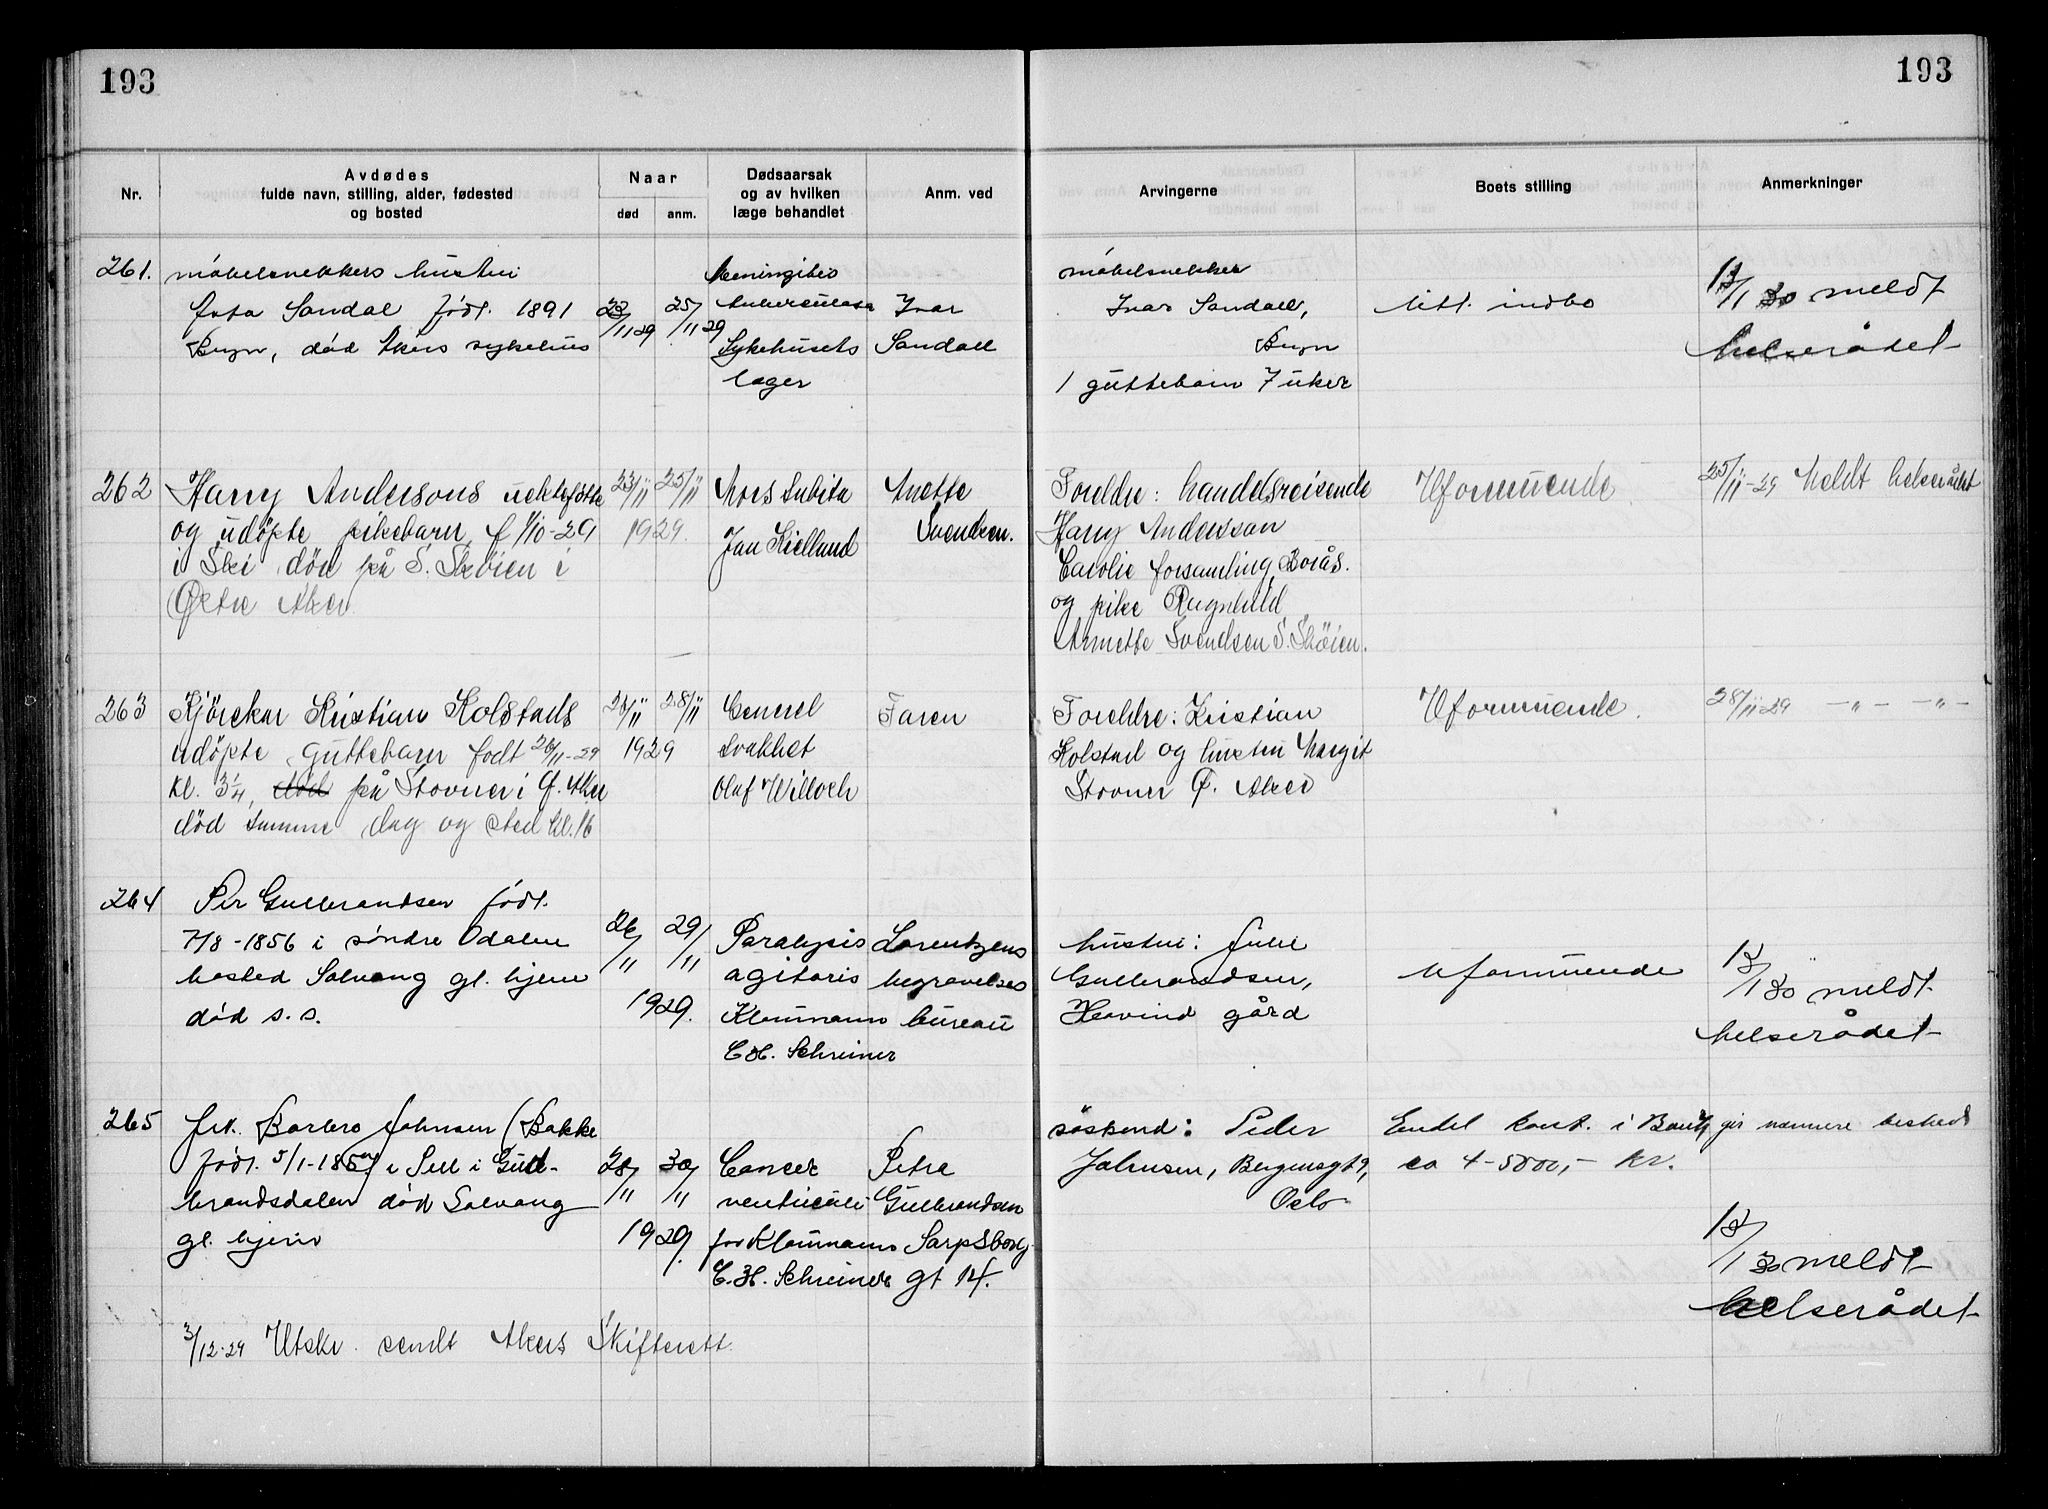 193
193
Nr.
Avdødes
fulde navn, stilling, alder, fødested
og bosted
Naar
død
anm.
Dødsaarsak
og av hvilken
læge behandlet
Anm. ved
Arvingerne
Boets stilling
Anmerkninger
261.
møbelsnekkers hustru
Sandal født. 1891
Bryn, død Akers sykehus
23/11 29
25/11 29
Meningitis
tuberculosa
Sykehusets
læger
Ivar
Sandall
møbelsnekker
Ivar Sandall,
Bryn
1 guttebarn 7 uker
litt indbo
13/1 30 meldt
helserådet
262
Harry Andersons uektefødte
og udøpte pikebarn f 1/10-29
i Ski død på S. Skøien i
Østre Aker
23/11
25/11
1929.
Mors Subita
Jan Kielland
Anette
Svendsen.
Foreldre: handelsreisende
Harry Andersson
Carolie forsamling Borås.
og pike Ragnhild
Annette Svendsen S. Skøien.
Uformuende
25/11-29 Meldt helserådet
263
Kjørekar Kristian Kolstads
udøpte guttebarn født 26/11-29
kl. 3 1/4, død på Stovner i Ø. Aker
død samme dag og sted kl. 16
26/11
28/11
1929
Generel
svakhet
Olaf Willoch
Faren
Foreldre: Kristian
Kolstad og hustru Margit
Stovner Ø. Aker
Uformuende.
28/11 29 -"- -"-
264
Per Gulbrandsen født.
7/8-1856 i søndre Odalen
bosted Solvang gl. hjem
død s. s.
26/11
29/11
1929.
Paralysis
agitaris
Kommunens
C. H. Schreiner
Lorentzens
begravelses
bureau
hustru: Julie
Gulbrandsen,
Hovind gård
Uformuende
13/1 30 meldt.
helserådet
265
frk. Barbro Johnsen (Bakke
født. 5/1-18 i Sell i Gud-
brandsdalen død Solvang
gl. hjem
28/11
30/11
1929.
Cancer
ventriculi
for Kommunens
C. H. Schreiner
Petra
Gulbrandsen
Sarpsborg
gt 14.
søskend: Peder
Johnsen, Bergensgt 9,
Oslo
Endel kont. i Bank
ca 4-5000,- kr.
gir nærmere beskjed
13/1 30 meldt
helserådet
3/12-29 Utskr. sendt Akers Skifterett.